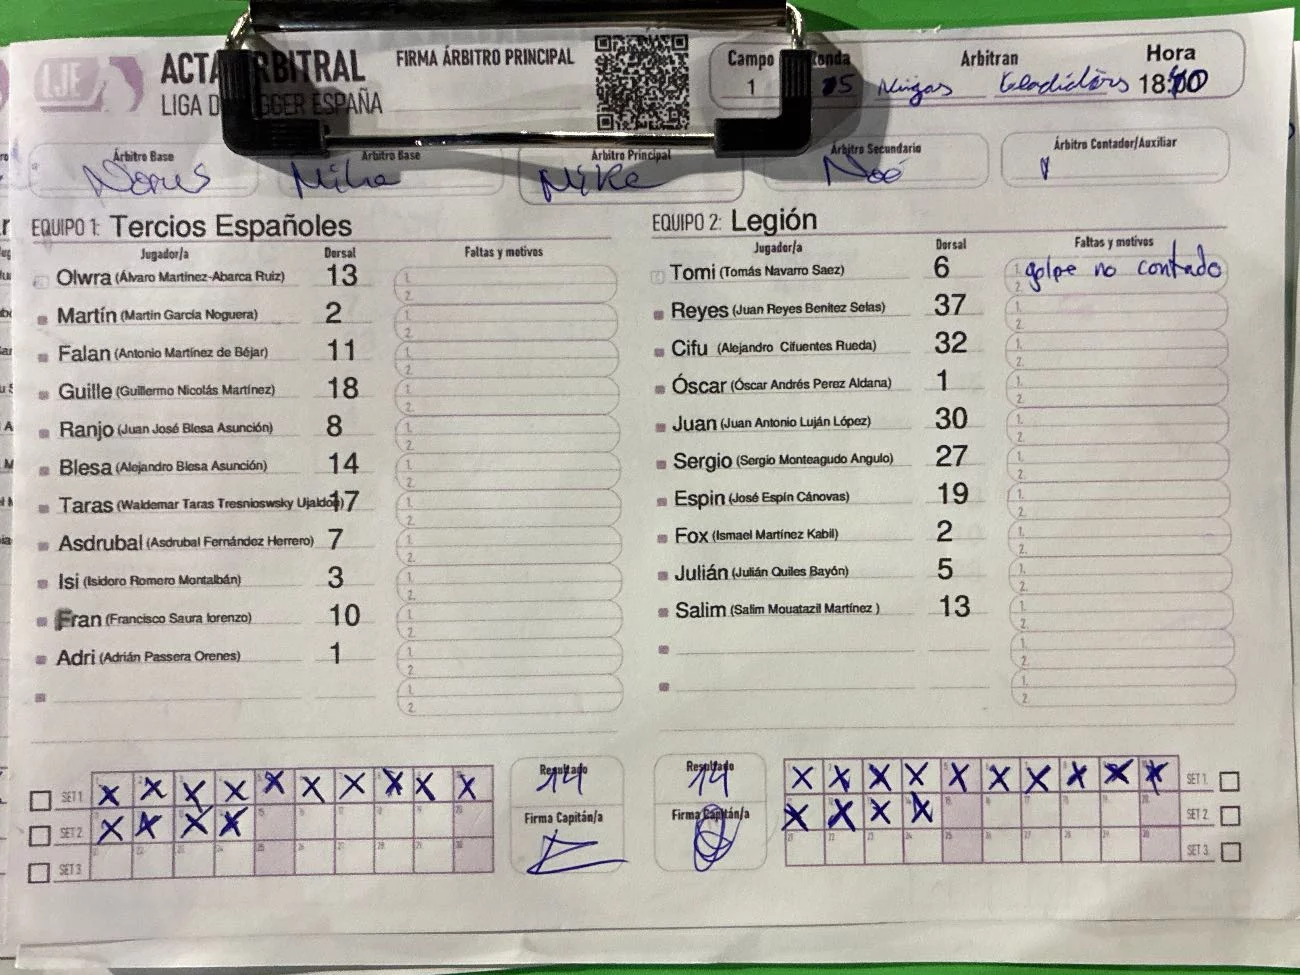 LJE
ACTA ARBITRAL
LIGA D GGER ESPAÑA
FIRMA ÁRBITRO PRINCIPAL
Campo
1
Ronda
5
Arbitran
Hora
Árbitro Base
Árbitro Base
Árbitro Principal
Mike
Árbitro Secundario
Noé
Árbitro Contador/Auxiliar
EQUIPO 1: Tercios Españoles
Jugador/a Dorsal Faltas y motivos
Olwra (Álvaro Martínez-Abarca Ruiz) 13 1. 2.
Martín (Martin García Noguera) 2 1. 2.
Falan (Antonio Martínez de Béjar) 11 1. 2.
Guille (Guillermo Nicolás Martínez) 18 1. 2.
Ranjo (Juan José Blesa Asunción) 8 1. 2.
Blesa (Alejandro Blesa Asunción) 14 1. 2.
Taras (Waldemar Taras Tresnioswsky Ujaldo) 17 1. 2.
Asdrubal (Asdrubal Fernández Herrero) 7 1. 2.
Isi (Isidoro Romero Montalbán) 3 1. 2.
Fran (Francisco Saura lorenzo) 10 1. 2.
Adri (Adrián Passera Orenes) 1 1. 2.
1. 2.
EQUIPO 2: Legión
Jugador/a Dorsal Faltas y motivos
Tomi (Tomás Navarro Saez) 6 1. golpe no contado 2.
Reyes (Juan Reyes Benitez Selas) 37 1. 2.
Cifu (Alejandro Cifuentes Rueda) 32 1. 2.
Óscar (Óscar Andrés Perez Aldana) 1 1. 2.
Juan (Juan Antonio Luján López) 30 1. 2.
Sergio (Sergio Monteagudo Angulo) 27 1. 2.
Espin (José Espín Cánovas) 19 1. 2.
Fox (Ismael Martínez Kabil) 2 1. 2.
Julián (Julián Quiles Bayón) 5 1. 2.
Salim (Salim Mouatazil Martínez ) 13 1. 2.
1. 2.
1. 2.
SET 1 X X X X X X X X X X
SET 2 X X X X
SET 3
Resultado
14
Firma Capitán/a
Resultado
14
Firma Capitán/a
X X X X X X X X X X SET 1
X X X X SET 2
SET 3